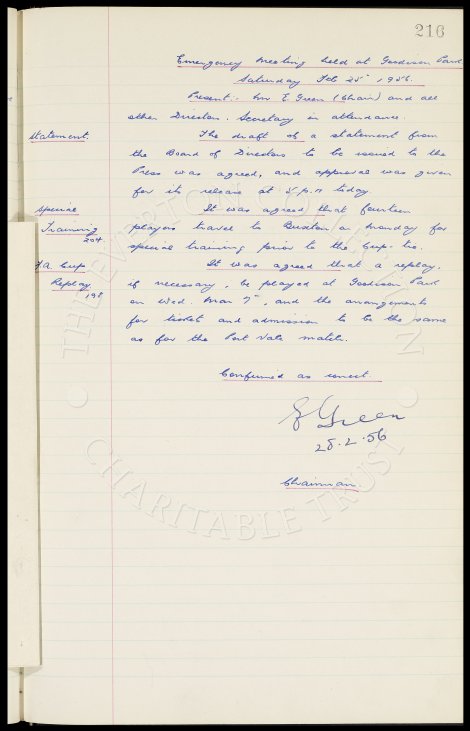 216
Emergency Meeting held at Goodison Park
Saturday Feb 25th 1956.
Present:- Mr E Green (Chair) and all
other Directors. Secretary in attendance.
Statement.
The draft of a statement from
the Board of Directors to be issued to the
Press was agreed, and approval was given
for its release at 5 p.m today
Special
Training
204
It was agreed that fourteen
players travel to Buxton on Monday for
special training prior to the Cup-tie.
F.A. Cup
Replay
198
It was agreed that a replay,
if necessary, be played at Goodison Park
on Wed. Mar 7th, and the arrangements
for ticket and admission to be the same
as for the Port Vale match.
Confirmed as correct.
E Green
28.2.56
Chairman.
THE EVERTON COLLECTION
CHARITABLE TRUST